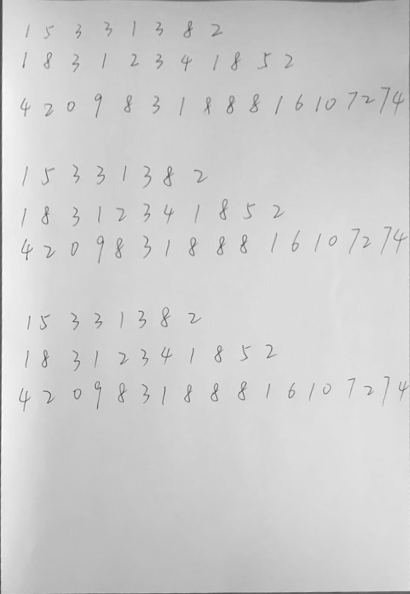 15331382
18312341852
420983188816107274
15331382
18312341852
420983188816107274
15331382
18312341852
420983188816107274